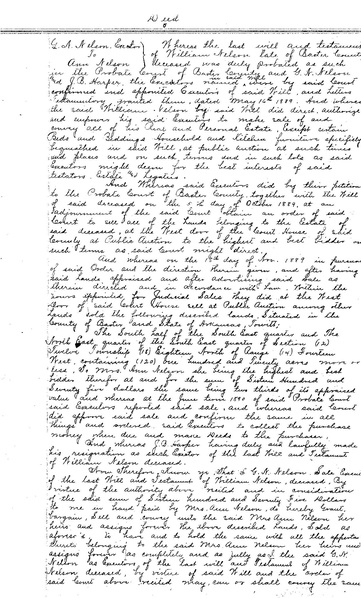 Deed
G. N. Nelson, Exctor Whereas the last will and testament
To of William Nelson late of Baxter County
Ann Nelson deceased was duly probated as such
in the Probate Court of Baxter County and G. N. Nelson
and J. B. Harper, the Executors named, were by said Court
confirmed and appointed Executors of said Will, and letters
testamentary granted them, dated May 16th 1889. And whereas
the said William Nelson by said Will did direct, authorize
and empower his said Executors to make sale of and
convey all of his Real and Personal Estate, Except certain
Beds and Beddings Household and Kitchen furniture specifically
bequeathed in said Will, at public auction at such times
and places and on such terms and in such lots as said
Executors might deem for the best interests of said
testators Estate & Legatees.
And Whereas said Executors did by their petition
to the Probate Court of Baxter County, together with the Will
of said deceased on the 5th day of October 1889, at an
Adjournment of the said Court obtain an order of said
Court to sell all of the Lands belonging to the Estate of
said deceased, at the West door of the Court House of said
County at Public Auction to the highest and best bidder on
such Terms as said Court might direct,
And whereas on the day of Nov. 1889 in pursuance
of said Order and the direction therein given, and after having
said lands appraised and after advertising said sale as
therein directed and in accordance with Law, Within the
hours appointed for Judicial Sales They did at the West
door of said Court House sell at Public Auction among other
Lands sold the following described Lands, Situated in the
County of Baxter and State of Arkansas, Towit:
The South half of the South East quarter and the
North East quarter of the South East quarter of Section (12)
Twelve Township (18) Eighteen North of Range (14) Fourteen
West, containing (120) One hundred and Twenty acres more or
less, To Mrs. Ann Nelson she being the highest and best
bidder therefor at and for the sum of Sixteen Hundred and
Seventy five dollars the same being two thirds of its appraised
value and whereas at the June term 1890 of said Probate Court
said Executors reported said sale, and whereas said Court
did approve said sale and confirm the same in all
things and ordered, said Executors to collect the purchase
money when due and make Deeds to the purchaser.
And whereas J. B. Hooper having duly and lawfully made
his resignation as such Exctor of the last Will and Testament
of William Nelson deceased.
Now Therefore Know ye, That I G. N. Nelson, Sole Executor
of the last Will and Testament of William Nelson, deceased, By
virtue of the authority above recited and in consideration
of the said sum of Sixteen hundred and Seventy Five Dollars
To me in hand paid by Mrs. Ann Nelson, do hereby Grant,
Bargain, Sell and convey unto the said Mrs Ann Nelson her
heirs and assigns forever the above described Lands Sold as
aforesaid. To have and to hold the same with all the appurtenances
thereto belonging to the said Mrs Ann Nelson her heirs and
assigns forever as completely and as fully as I the said G. N.
Nelson as Executor of the last will and Testament of William
Nelson deceased, by virtue of said Will and the order of
said Court above recited may, can or shall convey the same